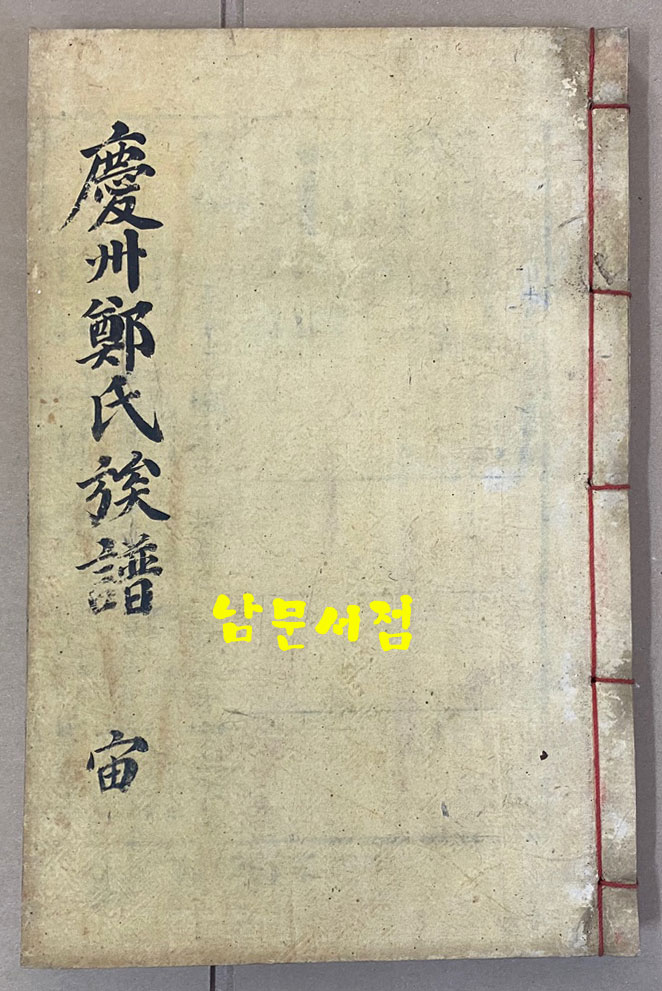 慶州鄭氏族譜
宙
남문서점